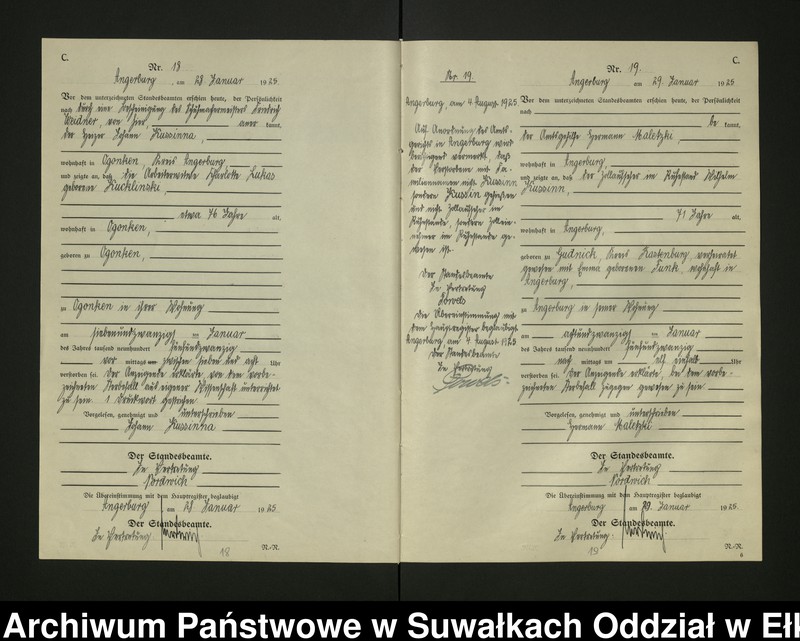 C.
Nr. 18
Angerburg, am 28 Januar 1925.
Vor dem unterzeichneten Standesbeamten erschien heute, der Persönlichkeit
nach durch eine Bescheinigung des
Weidner von hier, aner kannt,
der Heizer Johann Kussinna,
wohnhaft in Ogonken, Kreis Angerburg
und zeigte an, daß die Charlotte Lukas
geborene Kucklinski,
etwa 76 Jahre alt,
wohnhaft in Ogonken,
geboren zu Ogonken,
zu Ogonken in ihrer Wohnung
am siebenundzwanzigsten Januar
des Jahres tausend neunhundert fünfundzwanzig
vor mittags zwischen sieben und acht Uhr
verstorben sei. Der Anzeigende erklärte, von dem vorbe-
zeichneten Sterbefall aus eigener Wissenschaft unterrichtet
zu sein. 1 Druckwort gestrichen
Vorgelesen, genehmigt und unterschrieben
Johann Kussinna
Der Standesbeamte.
In Vertretung
Nordwich
Die Übereinstimmung mit dem Hauptregister beglaubigt
Angerburg am 28 Januar 1925.
Der Standesbeamte.
In Vertretung
18
N.-N.
Nr. 19.
Angerburg, am 4. August 1925
Auf Anordnung des Amts-
gerichts in Angerburg wird
berichtigend vermerkt, daß
der Verstorbene mit Fa-
miliennamen nicht Kussinn
sondern Kussin geheißen
und nicht Zollaufseher im
Ruhestande, sondern Zollein-
nehmer im Ruhestande ge-
wesen ist.
Der Standesbeamte
In Vertretung
Die Übereinstimmung mit
dem Hauptregister beglaubigt
Angerburg am 4. August 1925
Der Standesbeamte
In Vertretung
C.
Nr. 19.
Angerburg am 29. Januar 1925
Vor dem unterzeichneten Standesbeamten erschien heute, der Persönlichkeit
nach be kannt,
der Amtsgehilfe Hermann Maletzki,
wohnhaft in Angerburg,
und zeigte an, daß der Zollaufseher im Ruhestand Wilhelm
Kussinn,
71 Jahre alt,
wohnhaft in Angerburg,
geboren zu Gudnick, Kreis Rastenburg, verheiratet
gewesen mit Emma geborenen Funk, wohnhaft in
Angerburg,
zu Angerburg in seiner Wohnung
am achtundzwanzigsten Januar
des Jahres tausend neunhundert fünfundzwanzig
nach mittags um elf einhalb Uhr
verstorben sei. Der Anzeigende erklärte, bei dem vorbe-
zeichneten Sterbefall zugegen gewesen zu sein
Vorgelesen, genehmigt und unterschrieben
Hermann Maletzki
Der Standesbeamte.
In Vertretung
Nordwich
Die Übereinstimmung mit dem Hauptregister beglaubigt
Angerburg am 29. Januar 1925.
Der Standesbeamte.
In Vertretung.
19
N.-N.
6
Archiwum Państwowe w Suwałkach Oddział w Eł